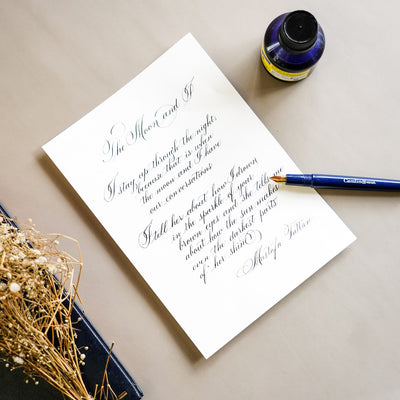 The Moon and I
I stay up through the night,
because that is when
the moon and I have
our conversations
I tell her about how I drown
in the sparkle of your
brown eyes and she tells me
about how the sun makes
even the darkest parts
of her skin